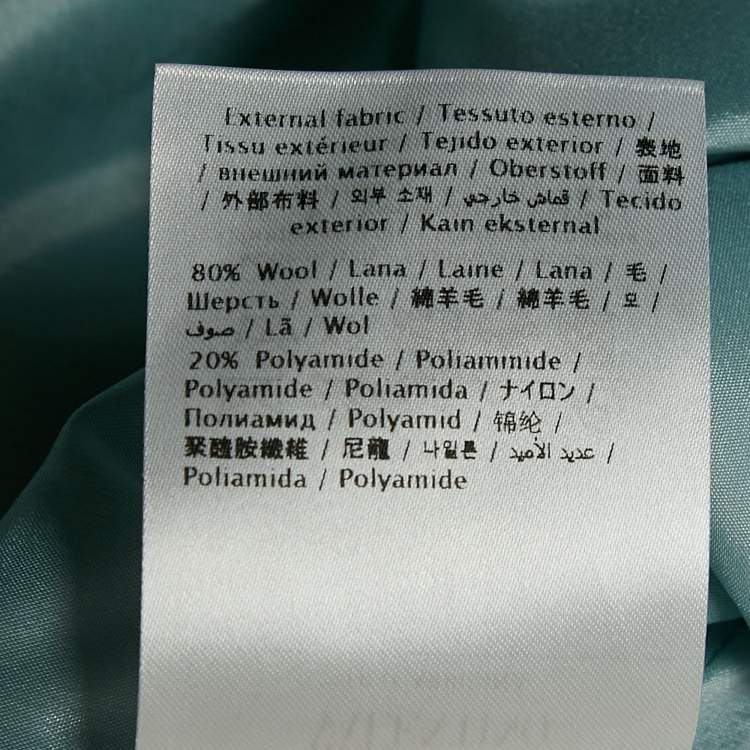 External fabric / Tessuto esterno /
Tissu extérieur / Tejido exterior / 表地
/ внешний материал / Oberstoff / 面料
/ 外部布料 / 외부 소재 / قماش خارجي / Tecido
exterior / Kain eksternal
80% Wool / Lana / Laine / Lana / 毛 /
Шерсть / Wolle / 綿羊毛 / 綿羊毛 / 모 /
صوف / Lã / Wol
20% Polyamide / Poliammide /
Polyamide / Poliamida / ナイロン /
Полиамид / Polyamid / 锦纶 /
聚醯胺纖維 / 尼龍 / 나일론 / عديد الأميد /
Poliamida / Polyamide